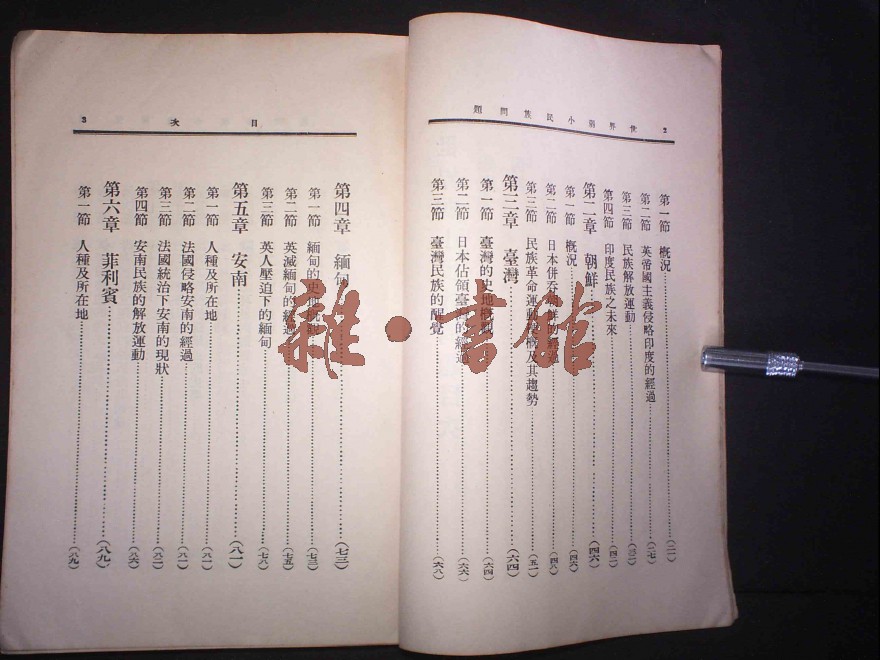 世界弱小民族問題 2
第一節 概況(二一)
第二節 英帝國主義侵略印度的經過(二七)
第三節 民族解放運動(三二)
第四節 印度民族之未來(四二)
第二章 朝鮮(四六)
第一節 概況(四六)
第二節 日本併吞朝鮮的經過(四八)
第三節 民族革命運動及其趨勢(五一)
第三章 臺灣(六四)
第一節 臺灣的史地概觀(六四)
第二節 日本佔領臺灣的經過(六六)
第三節 臺灣民族的醒覺(六八)
目次 3
第四章 緬甸(七三)
第一節 緬甸的史地概觀(七三)
第二節 英滅緬甸的經過(七五)
第三節 英人壓迫下的緬甸(七八)
第五章 安南(八一)
第一節 人種及所在地(八一)
第二節 法國侵略安南的經過(八一)
第三節 法國統治下安南的現狀(八二)
第四節 安南民族的解放運動(八六)
第六章 菲利賓(八九)
第一節 人種及所在地(八九)
雜·書館